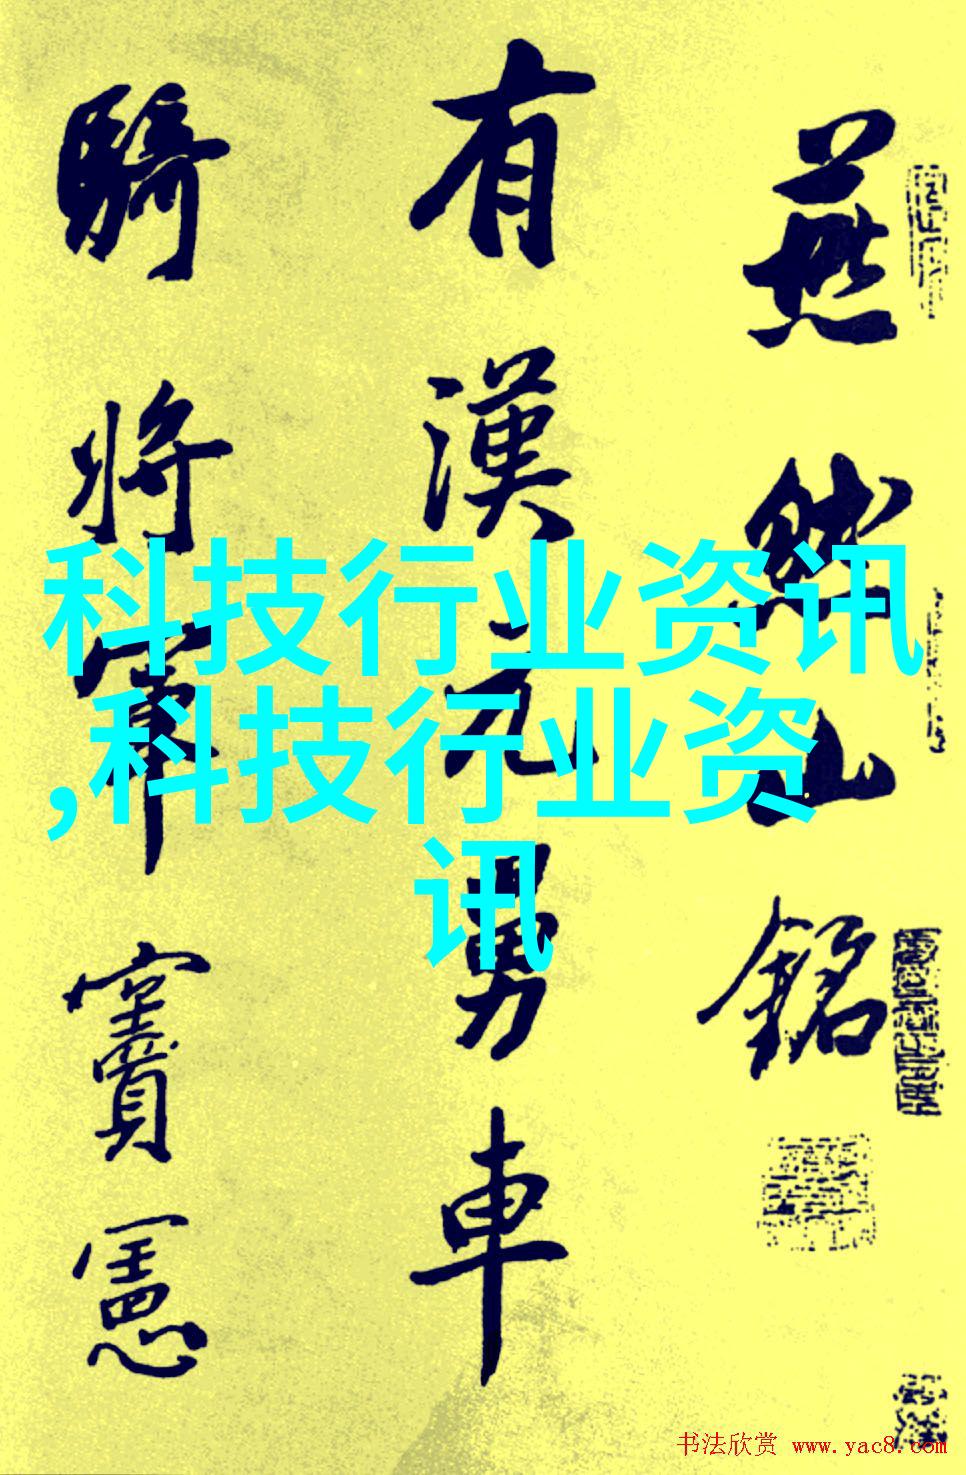 燕然山銘
有漢元舅車
騎將軍竇憲
科技行业资讯
,科技行业资
讯
书法欣赏 www.yac8.com